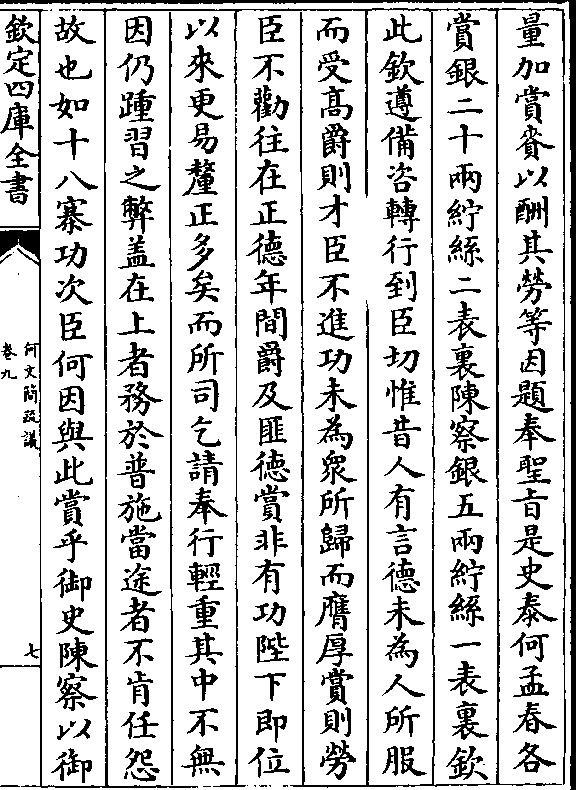 量加賞賚以酬其勞等因題奉聖旨是史泰何孟春各
賞銀二十兩紵絲二表裏陳察銀五兩紵絲一表裏欽
此欽遵備咨轉行到臣切惟昔人有言德未為人所服
而受髙爵則才臣不進功未為衆所歸而膺厚賞則勞
臣不勸往在正德年間爵及匪德賞非有功陛下即位
以來更易釐正多矣而所司乞請奉行輕重其中不無
因仍踵習之弊盖在上者務於普施當途者不肯任怨
故也如十八寨功次臣何因與此賞乎御史陳察以御
欽定四庫全書
何文簡疏議
卷九
七